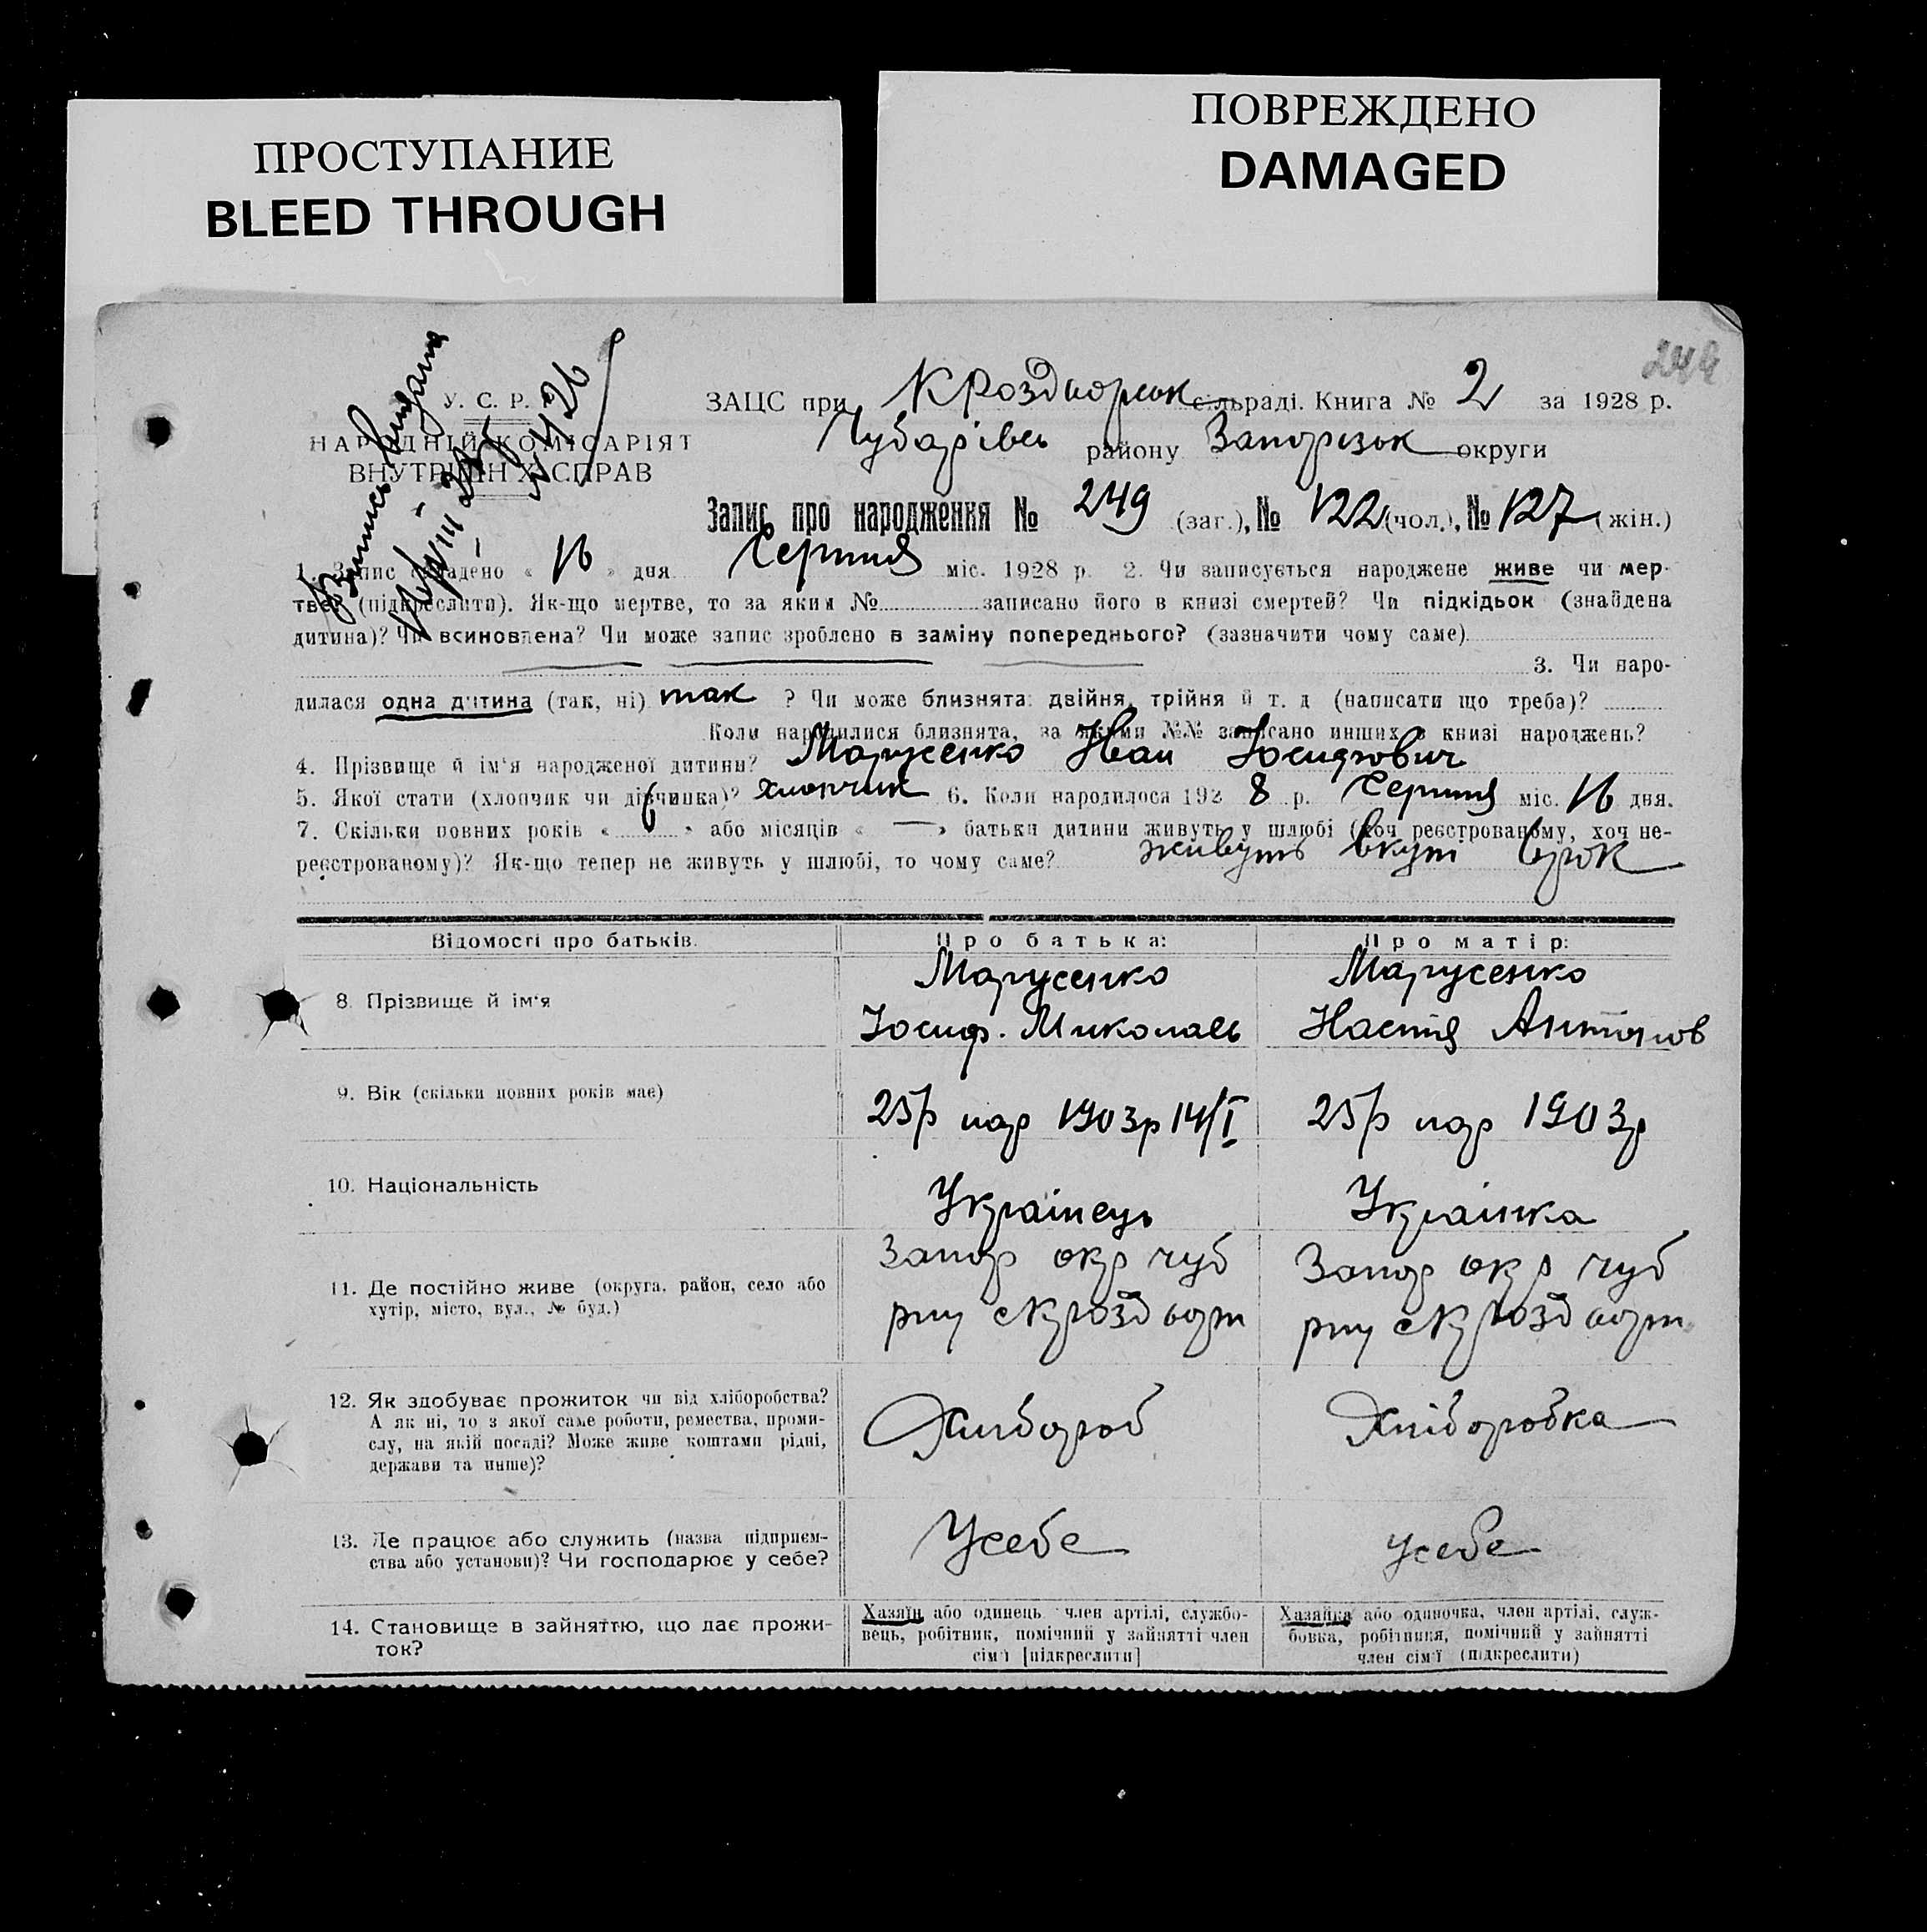 ПРОСТУПАНИЕ
BLEED THROUGH
ПОВРЕЖДЕНО
DAMAGED
У. С. Р. Р.
НАРОДНІЙ КОМІСАРІЯТ
ВНУТРІШНІХ СПРАВ
ЗАЦС при К Роздорськ сільраді. Книга № 2 за 1928 р.
Чубарівсь району Запорізьк округи
Запис про народження № 249 (заг.), № 122 (чол.), № 127 (жін.)
1. Запис складено « 16 » дня Серпня міс. 1928 р. 2. Чи записується народжене живе чи мер-
тве (підкреслити). Як-що мертве, то за яким № записано його в книзі смертей? Чи підкідьок (знайдена
дитина)? Чи всиновлена? Чи може запис зроблено в заміну попереднього? (зазначити чому саме)
3. Чи наро-
дилася одна дитина (так, ні) так ? Чи може близнята: двійня, трійня й т. д. (написати що треба)?
Коли народилися близнята, за якими №№ записано инших в книзі народжень?
4. Прізвище й ім'я народженої дитини? Марусенко Іван Йосипович
5. Якої стати (хлопчик чи дівчинка)? хлопчик 6. Коли народилося 192 8 р. Серпня міс. 16 дня.
7. Скільки повних років « 6 » або місяців « — » батьки дитини живуть у шлюбі (хоч реєстрованому, хоч не-
реєстрованому)? Як-що тепер не живуть у шлюбі, то чому саме? живуть вкупі
Відомості про батьків.
Про батька:
Про матір:
8. Прізвище й ім'я
Марусенко
Йосиф. Миколаєв
Марусенко
Настя Антонов
9. Вік (скільки повних років має)
25 р нар 1903р 14/I
25 р нар 1903р
10. Національність
Українець
Українка
11. Де постійно живе (округа, район, село або
хутір, місто, вул., № буд.)
Запор окр чуб
рну с Кроздорн
Запор окр чуб
рну с Кроздорн
12. Як здобуває прожиток чи від хліборобства?
А як ні, то з якої саме роботи, ремества, проми-
слу, на якій посаді? Може живе коштами рідні,
держави та инше)?
Хлібороб
Хліборобка
13. Де працює або служить (назва підприєм-
ства або установи)? Чи господарює у себе?
У себе
у себе
14. Становище в зайняттю, що дає прожи-
ток?
Хазяїн або одинець член артілі, службо-
вець, робітник, помічний у зайнятті член
сім'ї [підкреслити]
Хазяйка або одиночка, член артілі, служ-
бовка, робітниця, помічний у зайнятті
член сім'ї (підкреслити)